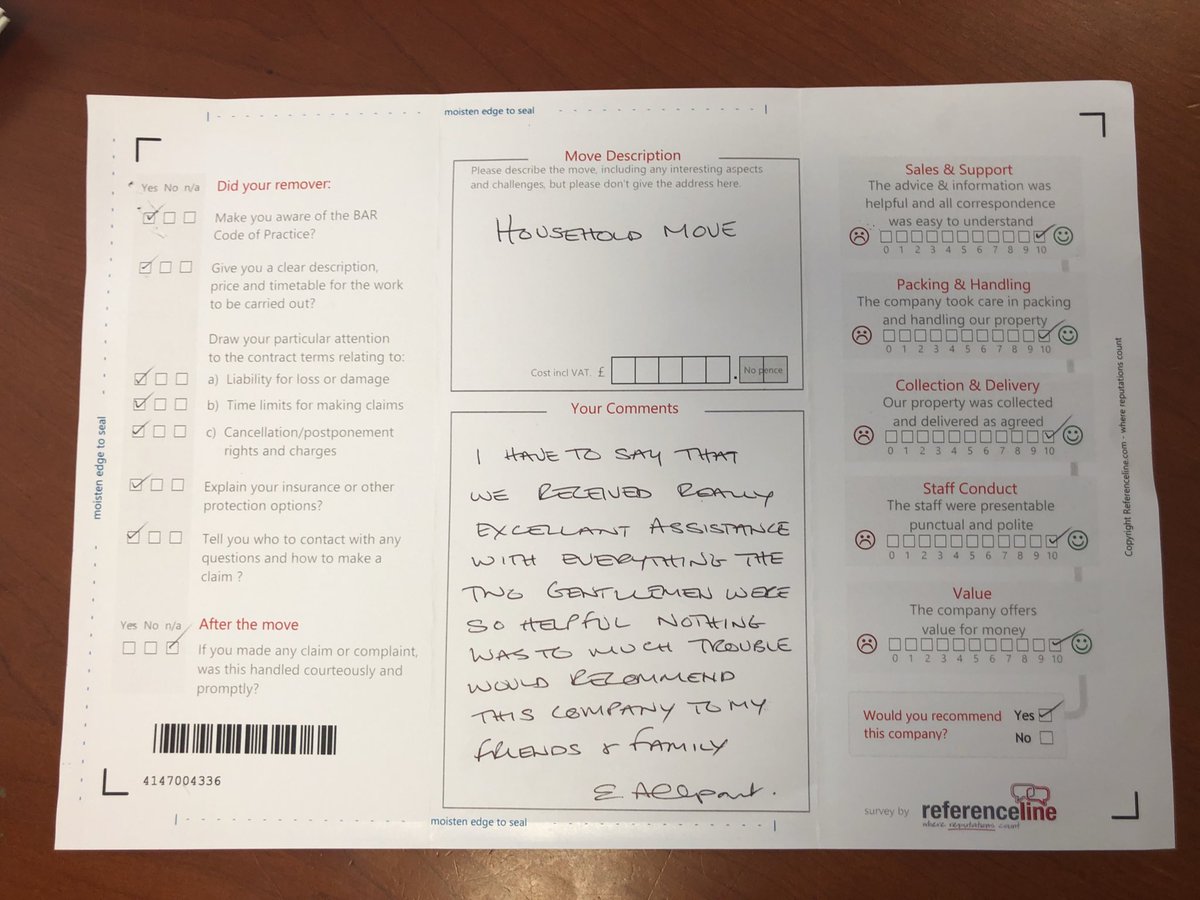 moisten edge to seal
Yes No n/a
Did your remover:
Make you aware of the BAR
Code of Practice?
Give you a clear description,
price and timetable for the work
to be carried out?
Draw your particular attention
to the contract terms relating to:
a) Liability for loss or damage
b) Time limits for making claims
c) Cancellation/postponement
rights and charges
Explain your insurance or other
protection options?
Tell you who to contact with any
questions and how to make a
claim ?
Yes No n/a
After the move
If you made any claim or complaint,
was this handled courteously and
promptly?
4147004336
moisten edge to seal
Move Description
Please describe the move, including any interesting aspects
and challenges, but please don't give the address here.
HOUSEHOLD MOVE
Cost incl VAT. £ . No pence
Your Comments
I HAVE TO SAY THAT
WE RECEIVED REALLY
EXCELLANT ASSISTANCE
WITH EVERYTHING THE
TWO GENTLEMEN WERE
SO HELPFUL NOTHING
WAS TO MUCH TROUBLE
WOULD RECOMMEND
THIS COMPANY TO MY
FRIENDS & FAMILY
E Allport.
moisten edge to seal
Sales & Support
The advice & information was
helpful and all correspondence
was easy to understand
0 1 2 3 4 5 6 7 8 9 10
Packing & Handling
The company took care in packing
and handling our property
0 1 2 3 4 5 6 7 8 9 10
Collection & Delivery
Our property was collected
and delivered as agreed
0 1 2 3 4 5 6 7 8 9 10
Staff Conduct
The staff were presentable
punctual and polite
0 1 2 3 4 5 6 7 8 9 10
Value
The company offers
value for money
0 1 2 3 4 5 6 7 8 9 10
Would you recommend
this company?
Yes
No
survey by referenceline
where reputations count
Copyright Referenceline.com - where reputations count